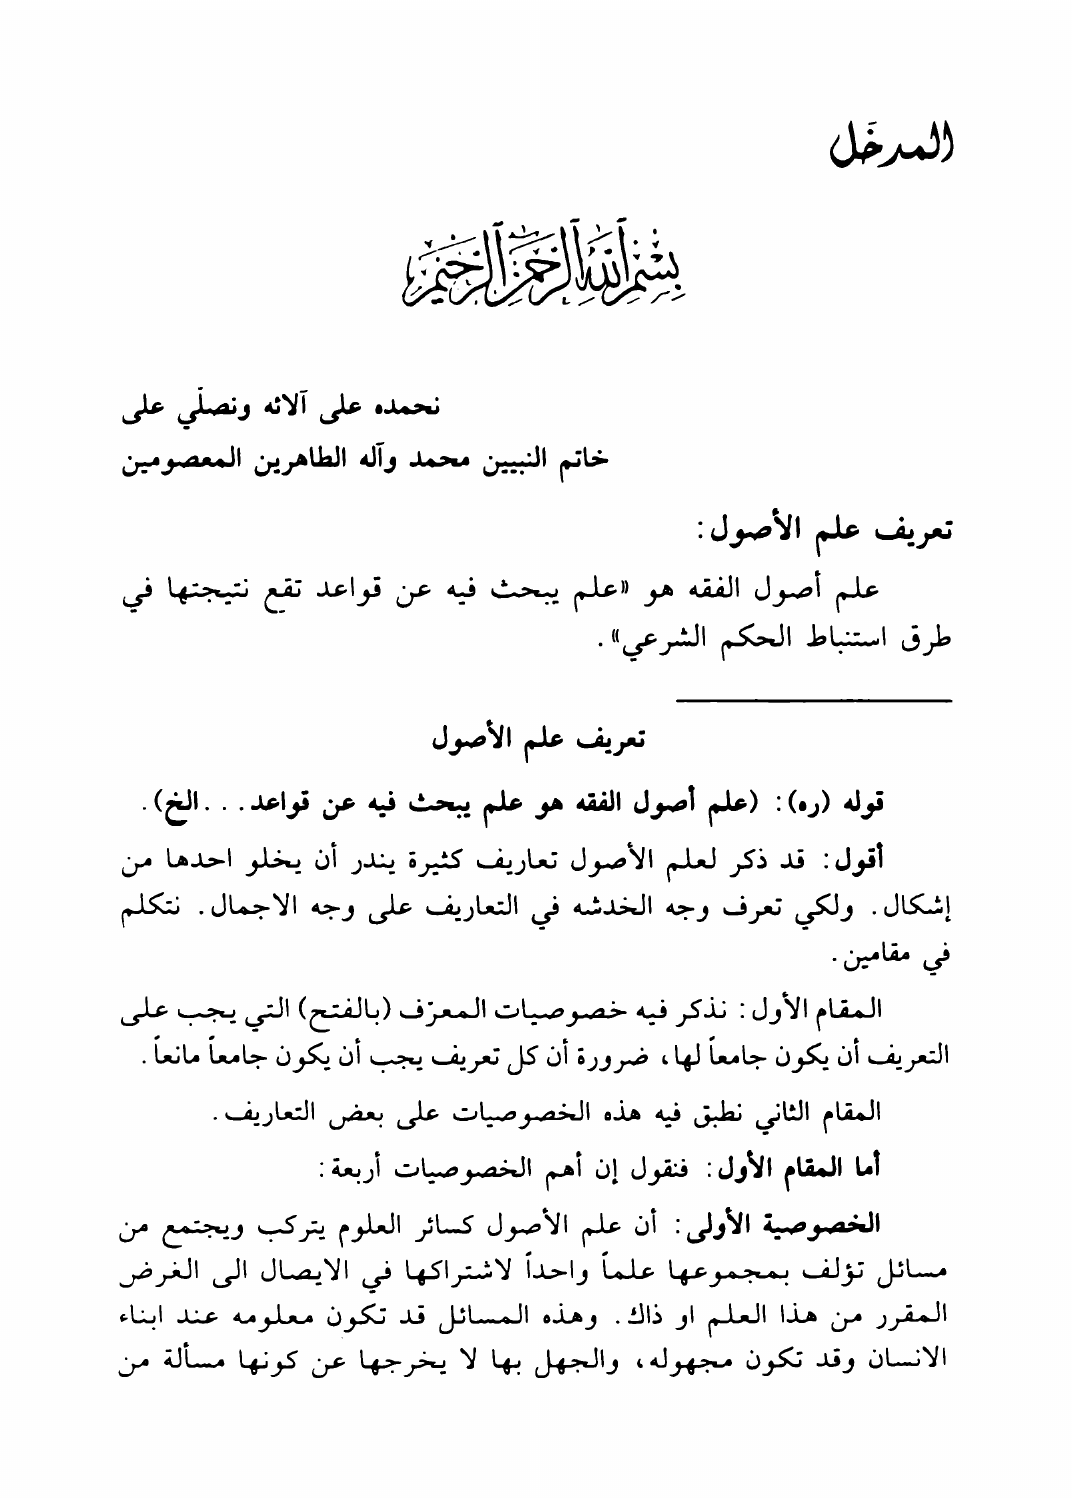 المدخَل
بسم الله الرحمن الرحيم
نحمده على آلائه ونصلّي على
خاتم النبيين محمد وآله الطاهرين المعصومين
تعريف علم الأصول:
علم أصول الفقه هو «علم يبحث فيه عن قواعد تقع نتيجتها في
طرق استنباط الحكم الشرعي».
تعريف علم الأصول
قوله (ره): (علم أصول الفقه هو علم يبحث فيه عن قواعد... الخ).
أقول: قد ذكر لعلم الأصول تعاريف كثيرة يندر أن يخلو احدها من
إشكال. ولكي تعرف وجه الخدشه في التعاريف على وجه الاجمال. نتكلم
في مقامين.
المقام الأول: نذكر فيه خصوصيات المعرّف (بالفتح) التي يجب على
التعريف أن يكون جامعاً لها، ضرورة أن كل تعريف يجب أن يكون جامعاً مانعاً.
المقام الثاني نطبق فيه هذه الخصوصيات على بعض التعاريف.
أما المقام الأول: فنقول إن أهم الخصوصيات أربعة:
الخصوصية الأولى: أن علم الأصول كسائر العلوم يتركب ويجتمع من
مسائل تؤلف بمجموعها علماً واحداً لاشتراكها في الايصال الى الغرض
المقرر من هذا العلم او ذاك. وهذه المسائل قد تكون معلومه عند ابناء
الانسان وقد تكون مجهوله، والجهل بها لا يخرجها عن كونها مسألة من